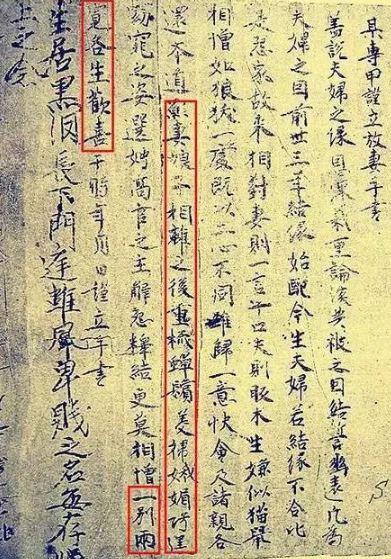 某專甲謹立放妻手書
蓋說夫婦之緣恩深義重論談共被之因結誓幽遠凡為
夫婦之因前世三年結緣始配今生夫婦若結緣不合比
是怨家故來相對妻則一言十口夫則販木生嫌似猫鼠
相憎如狼犾一處既以二心不同難歸一意快會及諸親各
還本道願妻娘子相離之後重梳蟬鬢美掃娥媚巧逞
窈窕之姿選娉高官之主解怨釋結更莫相憎一別兩
寬各生歡喜于時年月日謹立手書
生居黑淚長下門庭雖卑賤之名存
上之